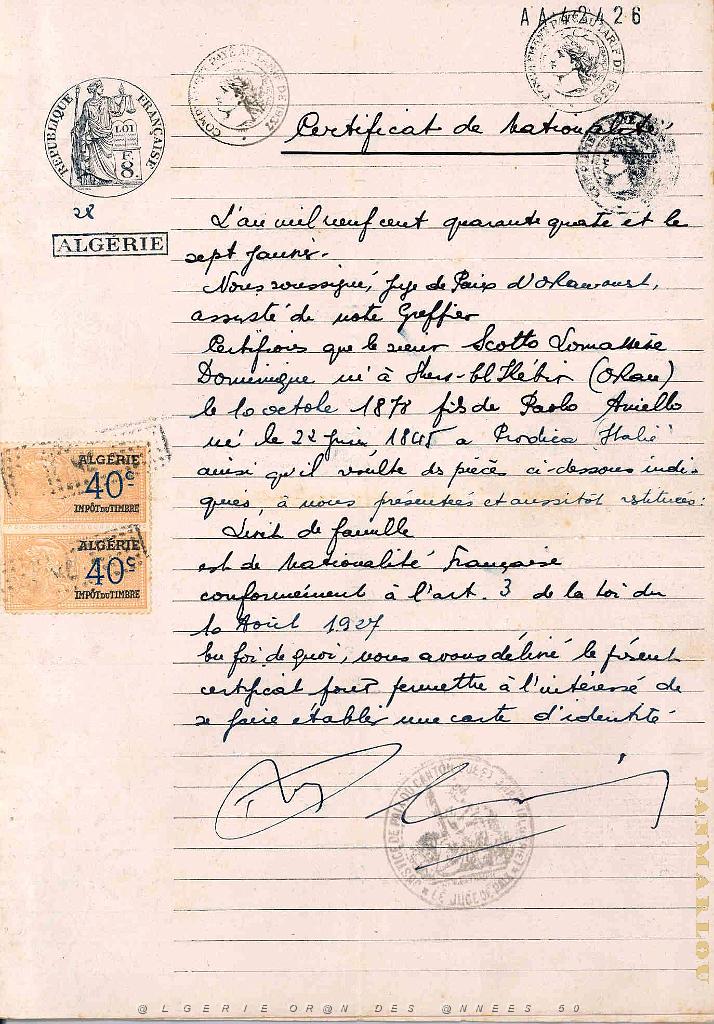 AA42426
COMPLEMENT PAYE AU TARIF DE 1939
RÉPUBLIQUE FRANÇAISE
LOI
F
8.
28
ALGÉRIE
Certificat de Nationalité
L'an mil neuf cent quarante quatre et le
sept Janvier.
Nous soussigné, Juge de Paix d'Oran ouest,
assisté de notre Greffier
Certifions que le sieur Scotto Lomassèse
Dominique né à Mers-El Kébir (Oran)
le 10 octobre 1878 fils de Paolo Aniello
né le 22 Juin 1845 a Procida Italie
ainsi qu'il résulte des pièces ci-dessous indi-
quées, à nous présentées et aussitôt restituées:
Livret de famille
est de Nationalité Française
conformément à l'art. 3 de la loi du
10 Août 1927
En foi de quoi, nous avons délivré le présent
certificat pour permettre à l'intéressé de
se faire établir une carte d'identité
ALGÉRIE
40c
IMPÔT DU TIMBRE
ALGÉRIE
40c
IMPÔT DU TIMBRE
JUSTICE DE PAIX DU CANTON OUEST
LE JUGE DE PAIX
DANMARLOU
@LGERIE OR@N DES @NNEES 50